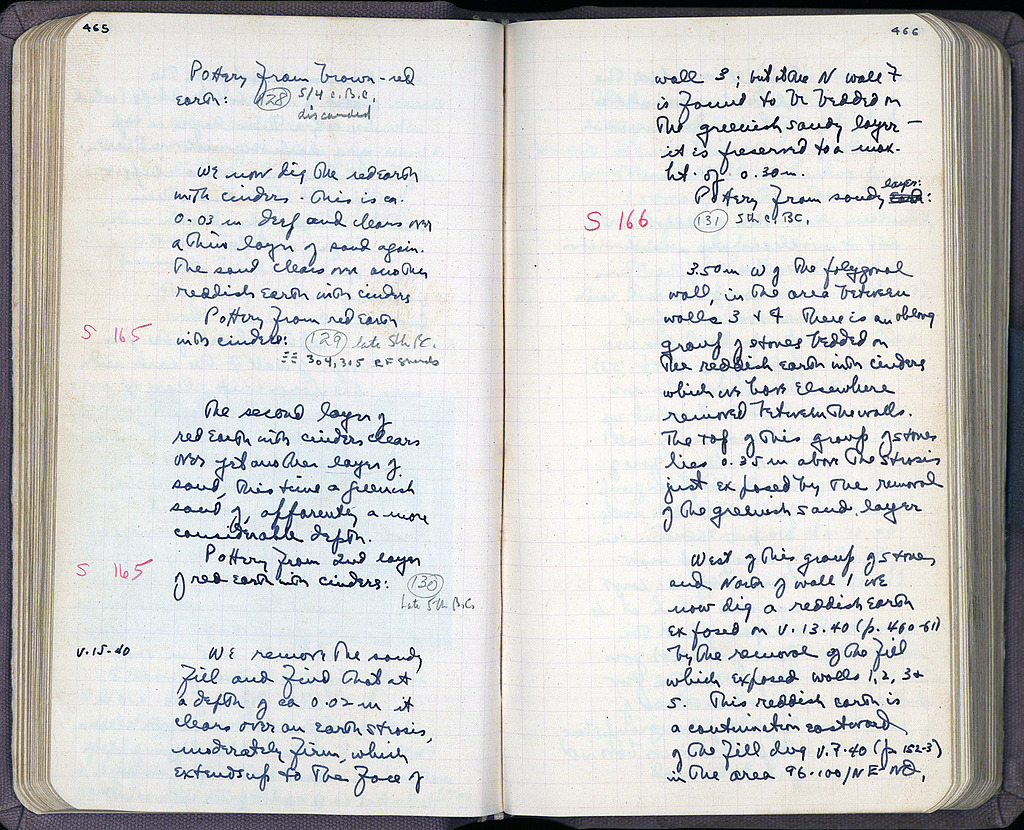 465
Pottery from brown-red
earth: 128 5/4 c. B.C.
discarded
We now dig the red earth
with cinders. This is ca.
0.03 m deep and clears over
a thin layer of sand again.
The sand clears over another
reddish earth with cinders
Pottery from red earth
S 165 with cinders: 129 late 5th BC.
304, 305 RF sherds
The second layer of
red earth with cinders clears
over yet another layer of
sand, this time a greenish
sand of, apparently a more
considerable depth.
Pottery from 2nd layer
S 165 of red earth with cinders: 130
late 5th B.C.
V.15.40 We remove the sandy
fill and find that at
a depth of ca 0.02 m it
clears over an earth strosis,
moderately firm, which
extends up to the face of
466
wall 3; but the N wall 7
is found to be bedded on
the greenish sandy layer –
it is preserved to a max.
ht. of 0.30 m.
Pottery from sandy layer:
S 166 131 5th c. BC.
3.50 m W of the polygonal
wall, in the area between
walls 3 & 4 there is an oblong
group of stones bedded on
the reddish earth with cinders
which we have elsewhere
removed between the walls.
The top of this group of stones
lies 0.35 m above the strosis
just exposed by the removal
of the greenish sand layer
West of this group of stones
and North of wall 1 we
now dig a reddish earth
exposed on V.13.40 (p. 460-61)
by the removal of the fill
which exposed walls 1, 2, 3 &
5. This reddish earth is
a continuation eastward
of the fill dug V.7.40 (p 152-3)
in the area 96-100/ΝΕ-ΝΘ.